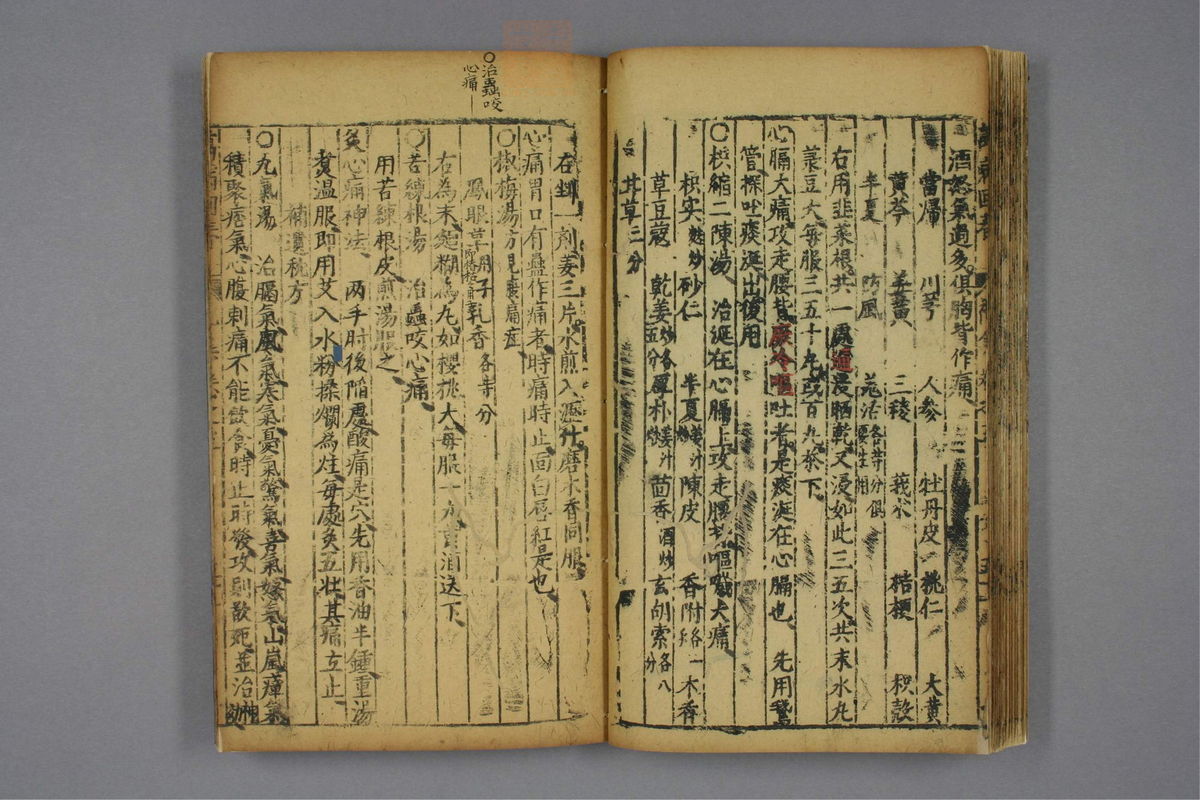 酒怒氣過多俱胸背作痛
當歸 川芎 人參 牡丹皮 桃仁 大黃
黃芩 姜黃 三稜 莪朮 桔梗 枳殼
半夏 防風 羌活各等分俱要生用
右用韭菜根共一處 晒乾又浸如此三五次共末水丸
菉豆大每服三五十丸或百丸茶下
心膈大痛攻走腰背厥冷嘔吐者是痰涎在心膈也 先用鵞
管探吐痰涎出後用
○枳縮二陳湯 治涎在心膈上攻走腰背嘔噦大痛
枳实麸炒 砂仁 半夏姜汁炒 陳皮 香附各一 木香
草荳蔻 乾姜炒各五分 厚朴姜汁炒 茴香酒炒 玄胡索各八分
甘草三分
右剉一剂姜三片水煎入瀝汁磨木香同服
○治蟲咬心痛
心痛胃口有蟲作痛者時痛時止面白唇紅是也
○椒梅湯方見腹痛症
鴈眼草用子 乳香各等分
右為末麪糊為丸如櫻桃大每服一丸 送下
○苦練根湯 治蟲咬心痛
用苦練根皮煎湯服之
灸心痛神法 兩手肘後陷處酸痛是穴先用香油半鍾重湯
煑温服即用艾入水粉揉爛為炷每處灸五壯其痛立止
補 方
○九氣湯 治膈氣風氣寒氣憂氣驚氣喜氣怒氣山嵐瘴氣
積聚痞氣心腹刺痛不能飲食時止時發攻則欲死並治